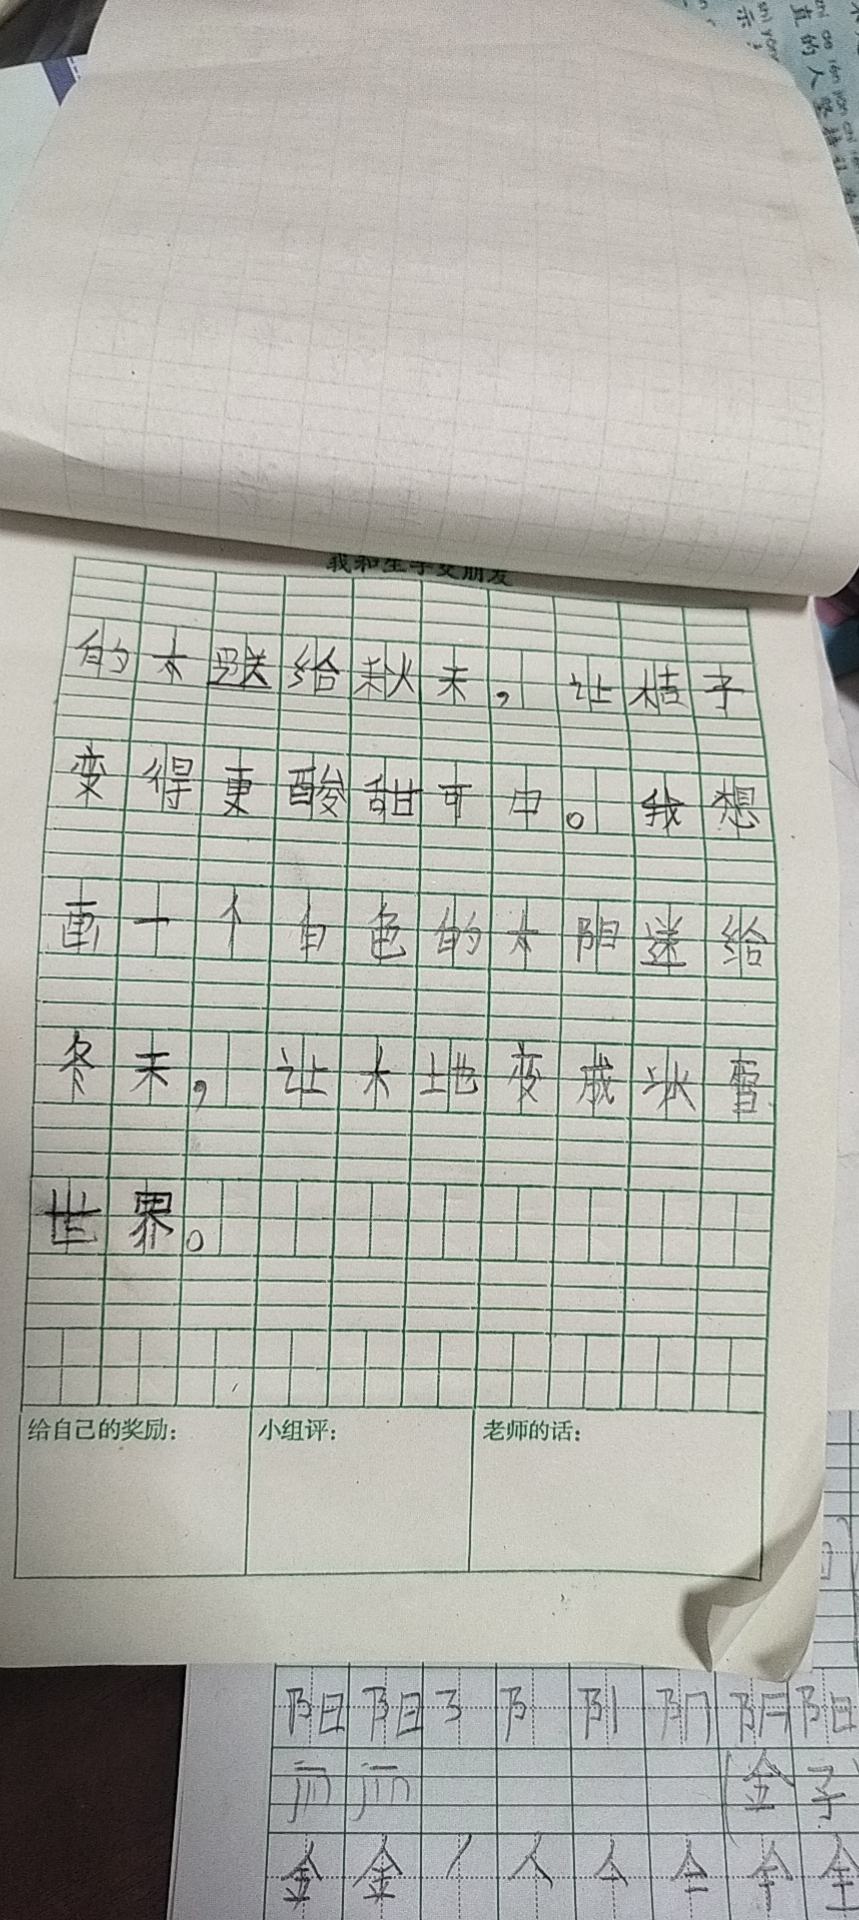 我和生字交朋友
的太联给秋天，让桔子
变得更酸甜可口。我想
画一个白色的太阳送给
冬天，让大地变成冰雪
世界。
给自己的奖励： 小组评： 老师的话：
阳阳 阳
(金子)
金金ノ人